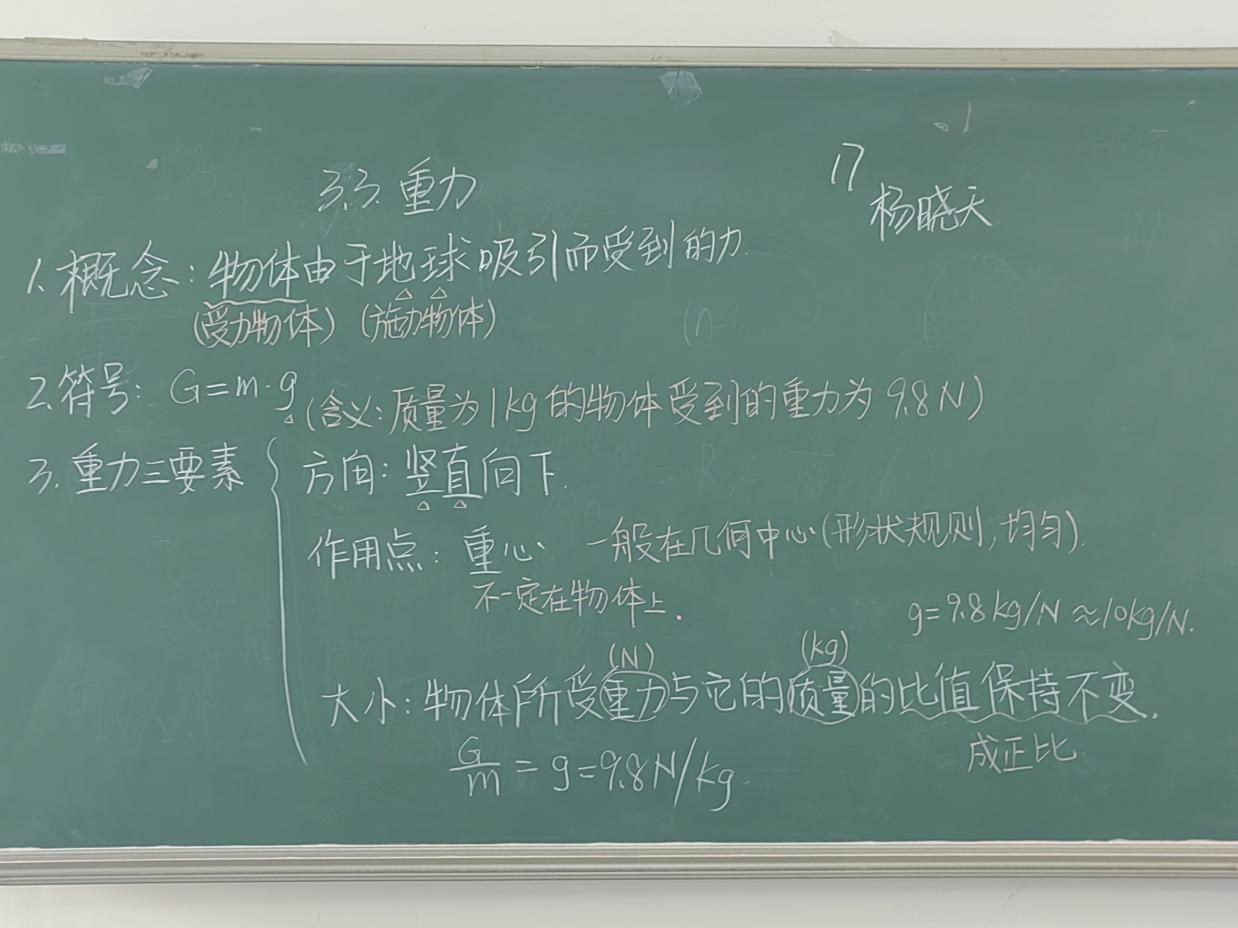 3.3. 重力
17
杨晓天
1. 概念：物体由于地球吸引而受到的力.
(受力物体) (施力物体)
2. 符号: G=m·g (含义: 质量为1kg的物体受到的重力为 9.8N)
3. 重力三要素
方向: 竖直向下.
作用点: 重心 一般在几何中心(形状规则,均匀).
不一定在物体上.
g=9.8kg/N≈10kg/N.
(N) (kg)
大小: 物体所受重力与它的质量的比值保持不变.
成正比
G/m = g=9.8N/kg.